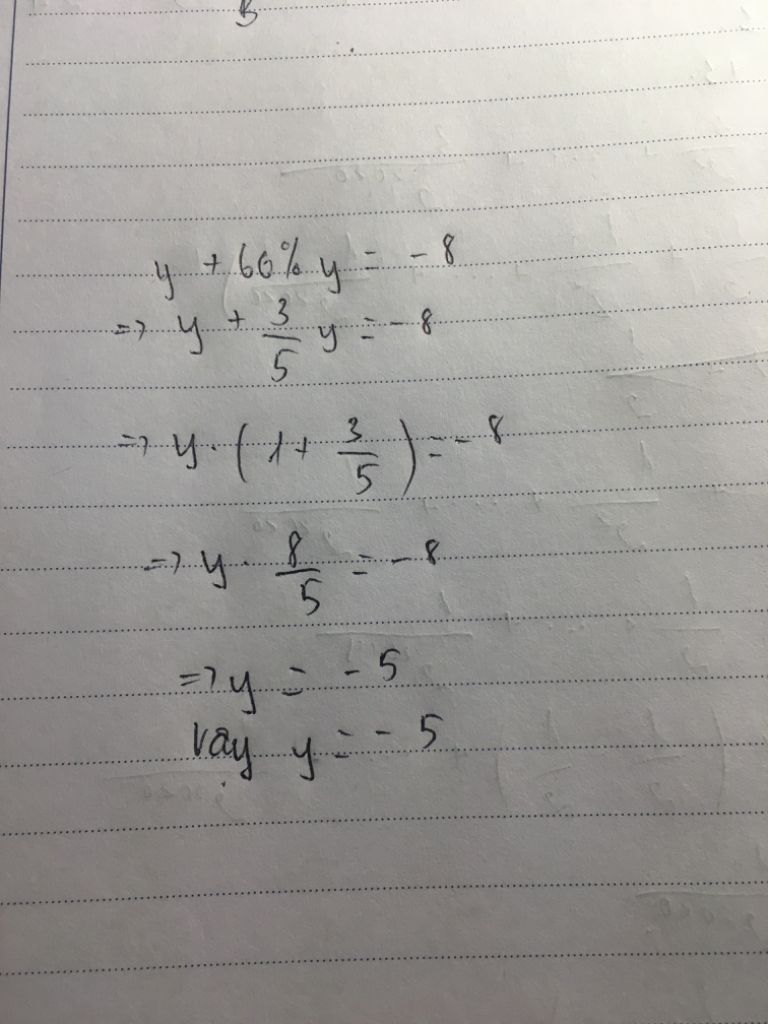 y + 60% y = - 8
=> y + 3/5 y = - 8
=> y . ( 1 + 3/5 ) = - 8
=> y . 8/5 = - 8
=> y = - 5
Vậy y = - 5